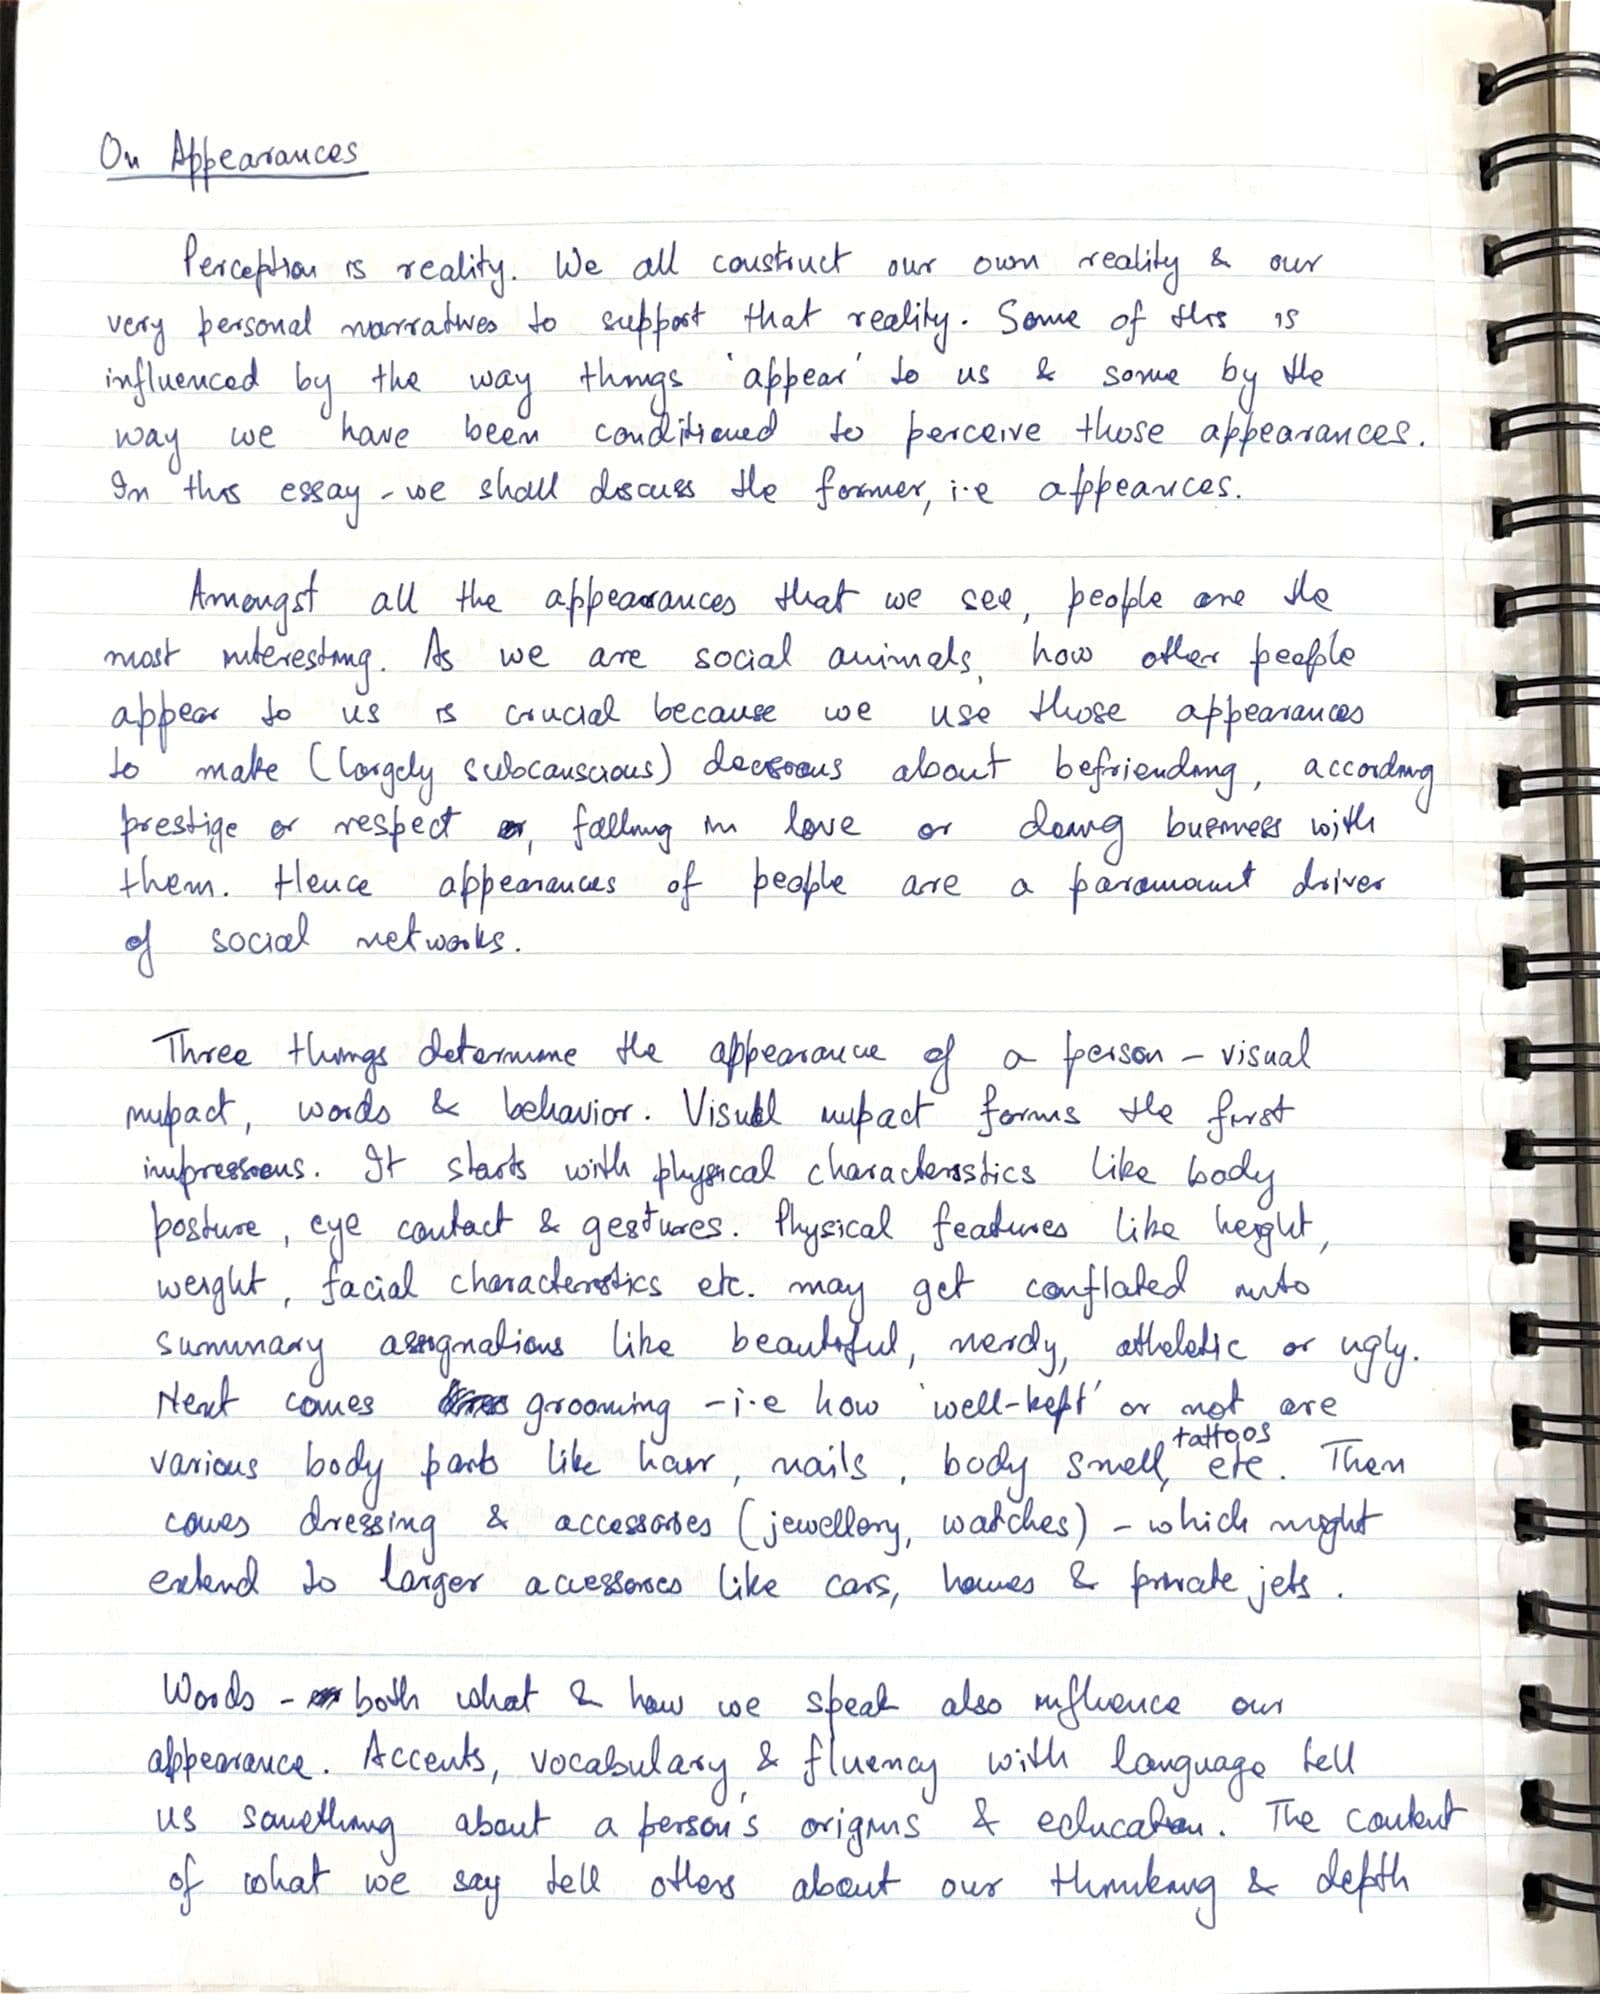 On Appearances
Perception is reality. We all construct our own reality & our
very personal narratives to support that reality. Some of this is
influenced by the way things 'appear' to us & some by the
way we have been conditioned to perceive those appearances.
In this essay - we shall discuss the former, i.e appeances.
Amongst all the appearances that we see, people are the
most interesting. As we are social animals, how other people
appear to us is crucial because we use those appearances
to make (largely subconscious) decisions about befriending, according
prestige or respect, falling in love or doing business with
them. Hence appearances of people are a paramount driver
of social networks.
Three things determine the appearance of a person - visual
impact, words & behavior. Visual impact forms the first
impressions. It starts with physical characteristics like body
posture, eye contact & gestures. Physical features like height,
weight, facial characteristics etc. may get conflated into
summary assignations like beautiful, nerdy, atheletic or ugly.
Next comes grooming - i.e how 'well-kept' or not are
various body parts like hair, nails, body smell, tattoos etc. Then
comes dressing & accessories (jewellery, watches) - which might
extend to larger accessories like cars, homes & private jets.
Words - both what & how we speak also influence our
appearance. Accents, vocabulary & fluency with language tell
us something about a person's origins & education. The content
of what we say tell others about our thinking & depth